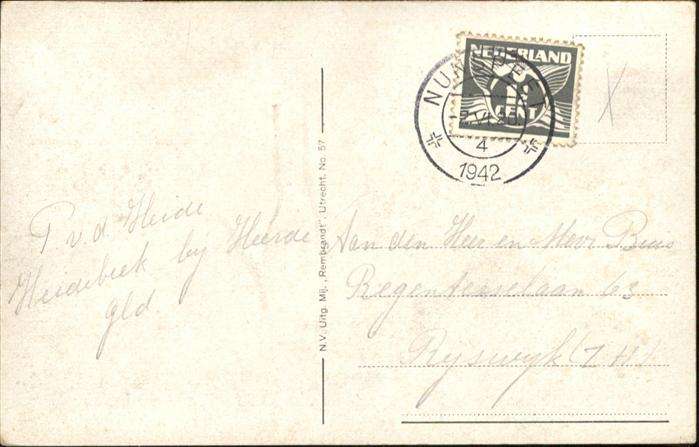 NEDERLAND
1
CENT
NUNSPEET
4
1942
N.V. Uitg. Mij. „Rembrandt", Utrecht. No. 57
v. d. Heide
by Heerde
gld
Aan den Heer en Mevr
Regentesselaan 63
Ryswyk (Z.H.)